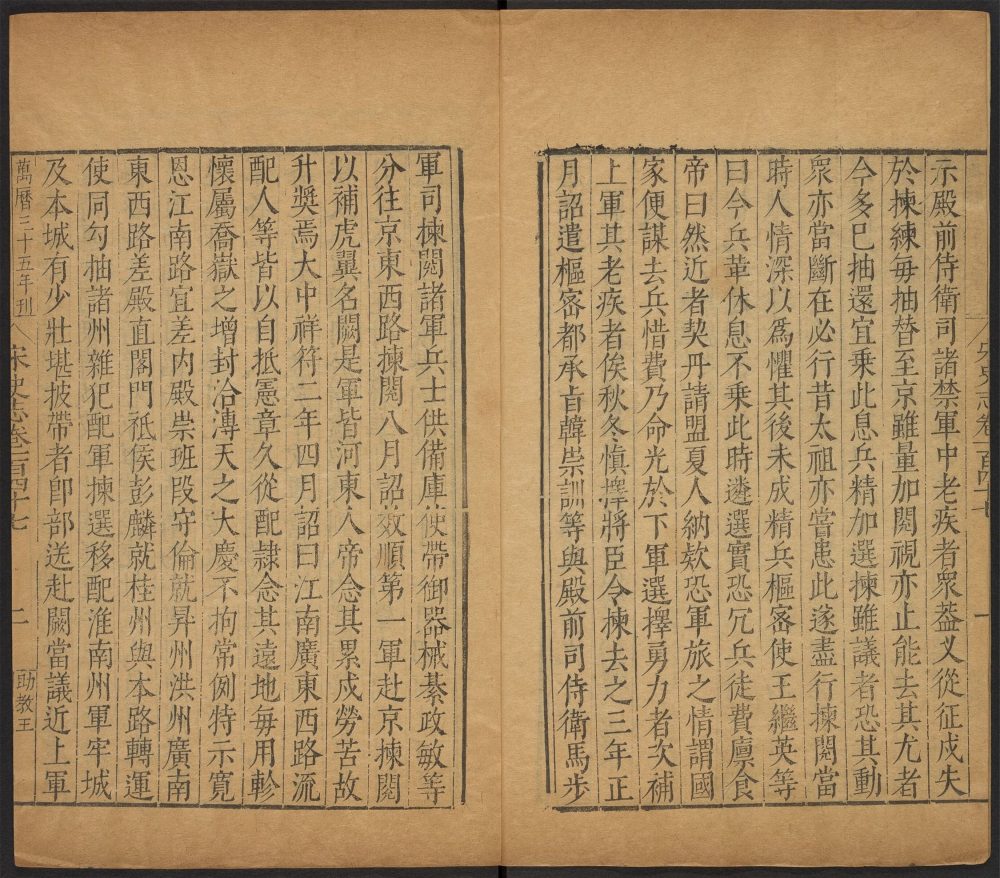 宋史志卷一百四十七 一
示殿前侍衛司諸禁軍中老疾者眾葢义從征戍失
於揀練毎抽替至京雖量加閱視亦止能去其尤者
今多巳抽還宜乗此息兵精加選揀雖議者恐其動
眾亦當斷在必行昔太祖亦嘗患此遂盡行揀閱當
時人情深以爲懼其後未成精兵樞宻使王繼英等
曰今兵革休息不乗此時遴選實恐冗兵徒費廪食
帝曰然近者契丹請盟夏人納欸恐軍旅之情謂國
家便謀去兵惜費乃命光於下軍選擇勇力者次補
上軍其老疾者俟秋冬慎擇將臣令揀去之三年正
月詔遣樞宻都承㫖韓崇訓等與殿前司侍衛馬步
軍司揀閱諸軍兵士供備庫使帶御器械綦政敏等
分往京東西路揀閱八月詔效順第一軍赴京揀閱
以補虎翼名闕是軍皆河東人帝念其累戍勞苦故
升奬焉大中祥符二年四月詔曰江南廣東西路流
配人等皆以自抵憲章久從配隷念其遠地毎用軫
懷屬喬嶽之增封洽溥天之大慶不拘常例特示寛
恩江南路宜差内殿崇班叚守倫就昇州洪州廣南
東西路差殿直閤門祗候彭麟就桂州與本路轉運
使同勾抽諸州雜犯配軍揀選移配淮南州軍牢城
及本城有少壯堪披帶者卽部送赴闕當議近上軍
萬曆三十五年刊 宋史志卷一百四十七 二 助教王